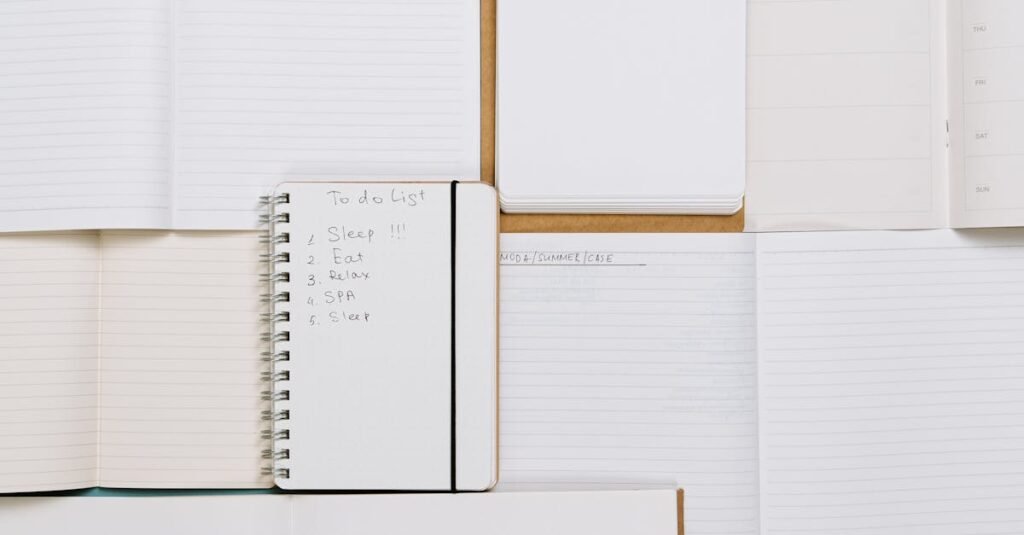 THU
FRI
SAT
SUN
To do List
1 Sleep !!!
2. Eat
3. Relax
4. SPA
5. Sleep
MODA/SUMMER/CASE